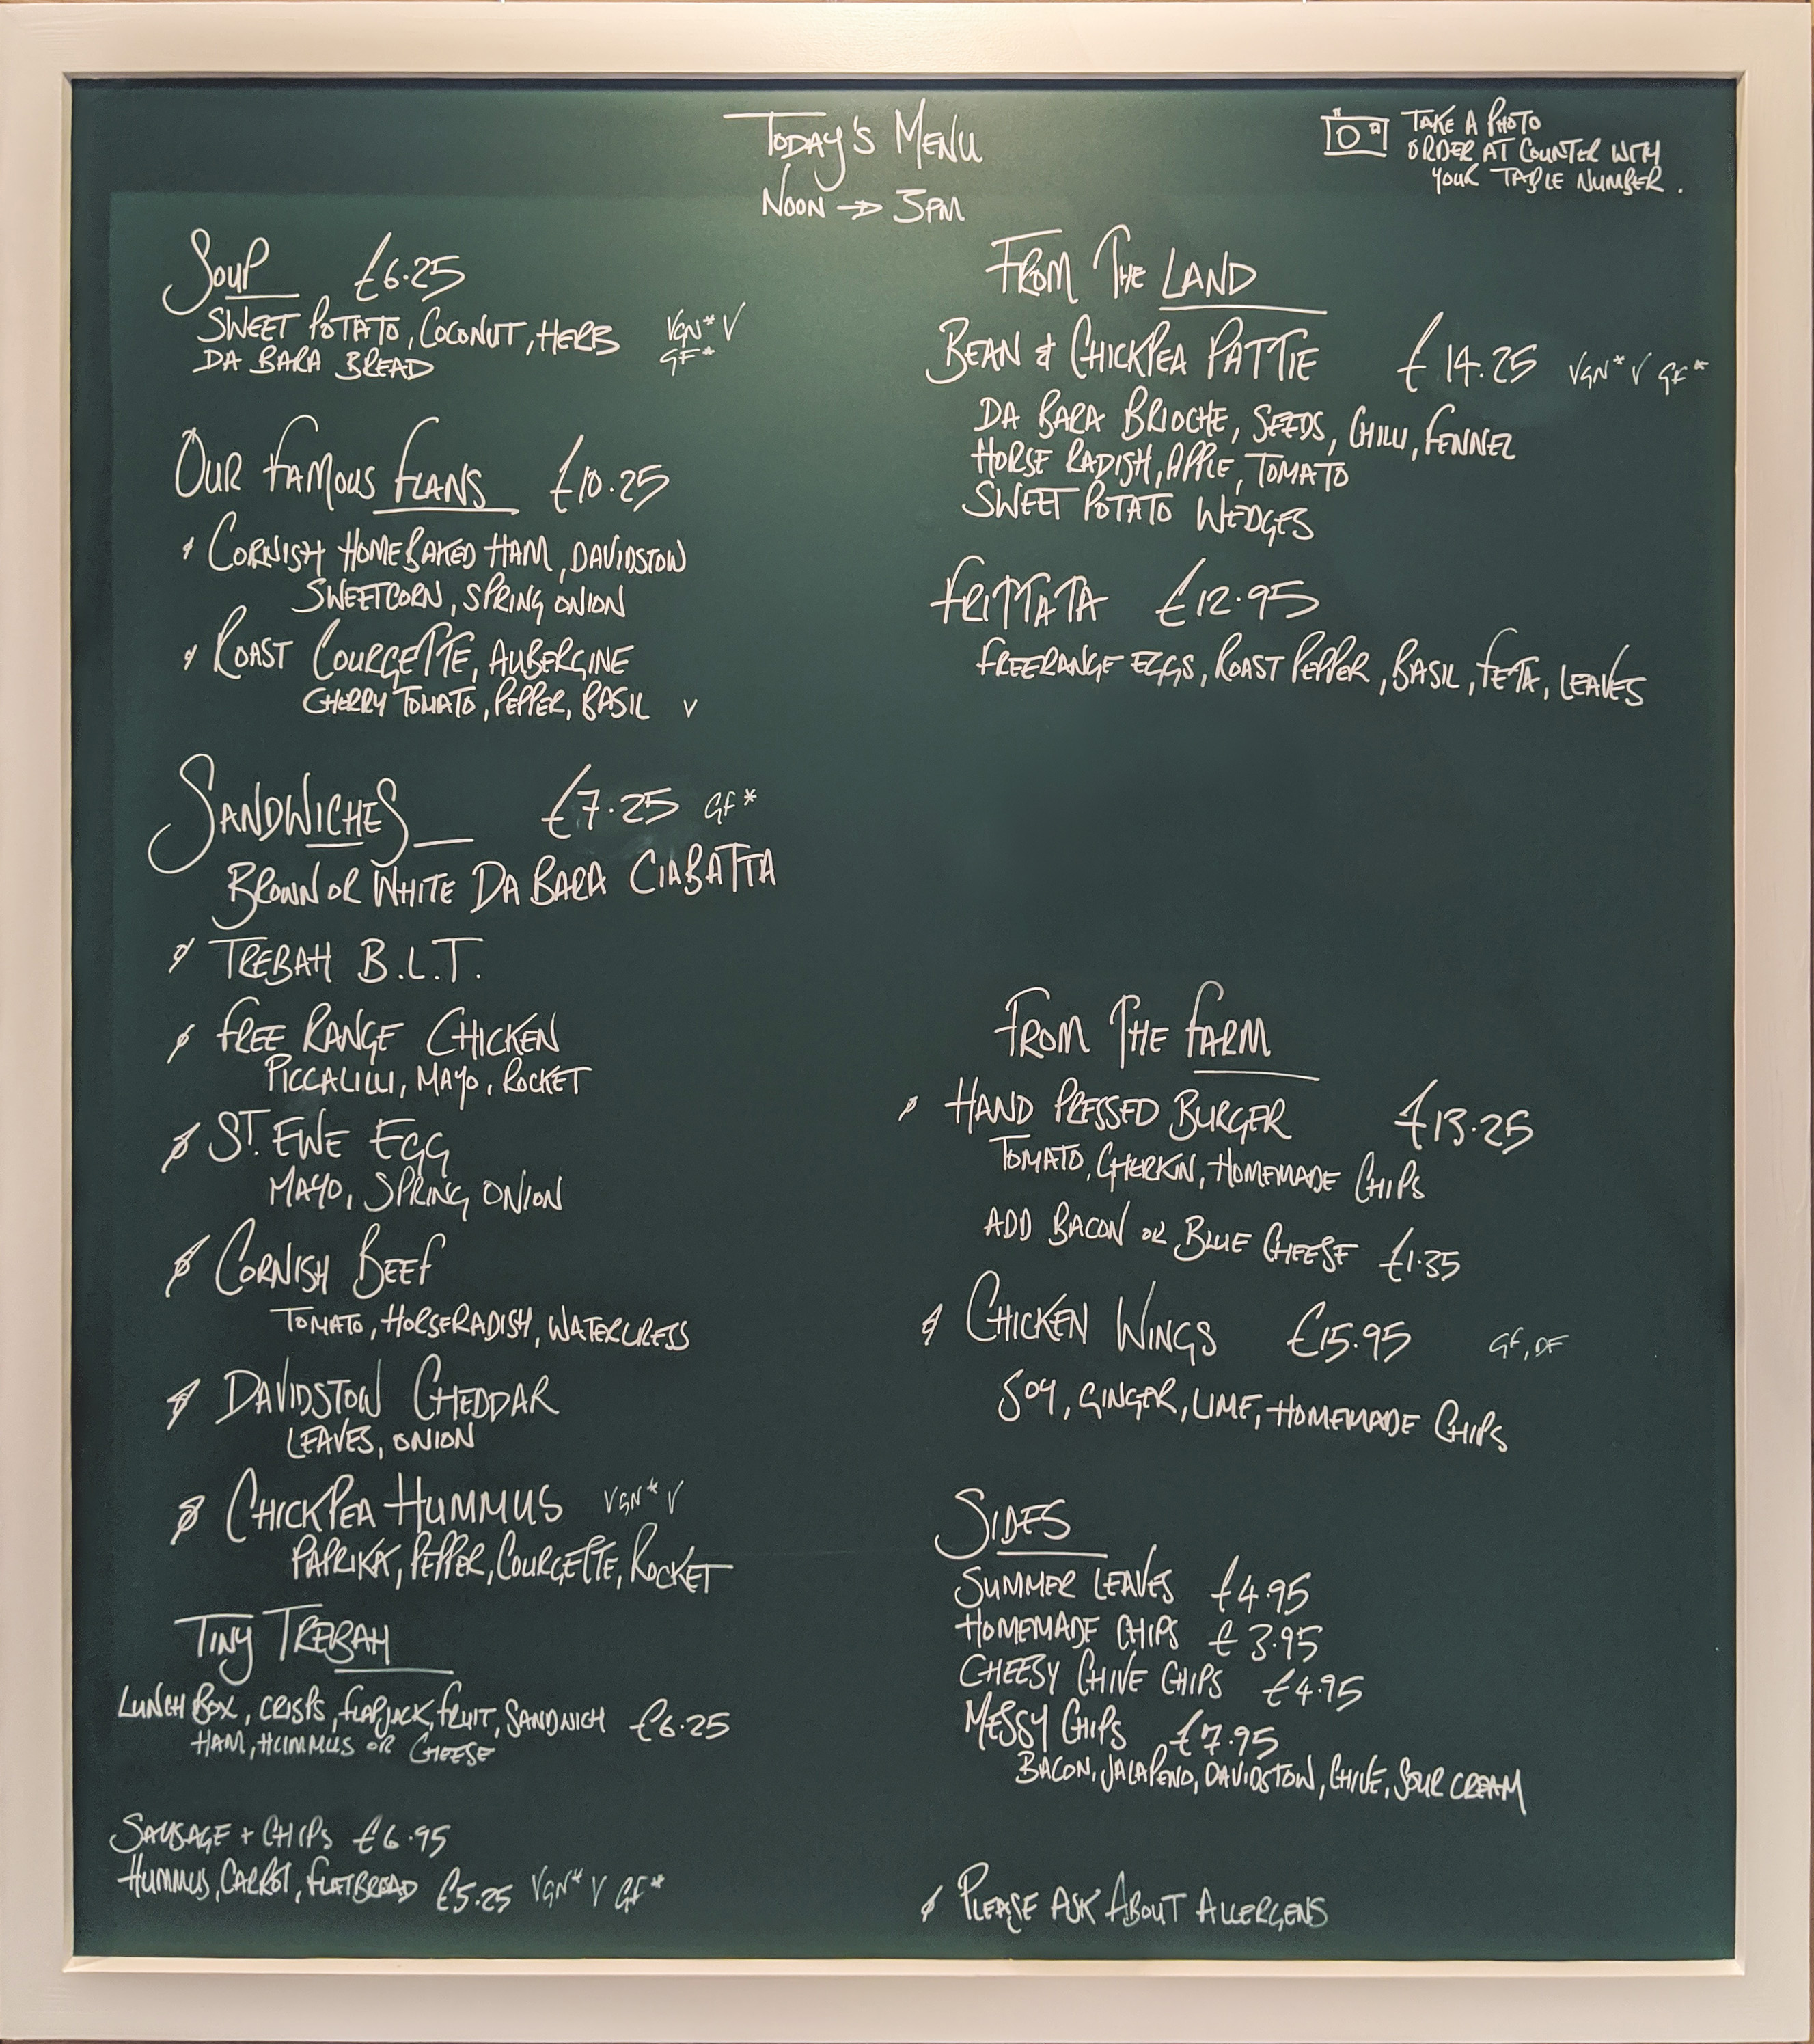 TODAY'S MENU
NOON → 3PM
TAKE A PHOTO
ORDER AT COUNTER WITH
YOUR TABLE NUMBER.
SOUP £6.25
SWEET POTATO, COCONUT, HERB VGN* V
DA BARA BREAD GF*
OUR FAMOUS FLANS £10.25
CORNISH HOMEBAKED HAM, DAVIDSTOW
SWEETCORN, SPRING ONION
ROAST COURGETTE, AUBERGINE
CHERRY TOMATO, PEPPER, BASIL V
SANDWICHES £7.25 GF*
BROWN OR WHITE DA BARA CIABATTA
TREBAH B.L.T.
FREE RANGE CHICKEN
PICCALILLI, MAYO, ROCKET
ST. EWE EGG
MAYO, SPRING ONION
CORNISH BEEF
TOMATO, HORSERADISH, WATERCRESS
DAVIDSTOW CHEDDAR
LEAVES, ONION
CHICKPEA HUMMUS VGN* V
PAPRIKA, PEPPER, COURGETTE, ROCKET
TINY TREBAH
LUNCH BOX, CRISPS, FLAPJACK, FRUIT, SANDWICH £6.25
HAM, HUMMUS OR CHEESE
SAUSAGE + CHIPS £6.95
HUMMUS, CARROT, FLATBREAD £5.25 VGN* V GF*
FROM THE LAND
BEAN & CHICKPEA PATTIE £14.25 VGN* V GF*
DA BARA BRIOCHE, SEEDS, CHILLI, FENNEL
HORSE RADISH, APPLE, TOMATO
SWEET POTATO WEDGES
FRITTATA £12.95
FREERANGE EGGS, ROAST PEPPER, BASIL, FETA, LEAVES
FROM THE FARM
HAND PRESSED BURGER £13.25
TOMATO, GHERKIN, HOMEMADE CHIPS
ADD BACON OR BLUE CHEESE £1.35
CHICKEN WINGS £15.95 GF, DF
SOY, GINGER, LIME, HOMEMADE CHIPS
SIDES
SUMMER LEAVES £4.95
HOMEMADE CHIPS £3.95
CHEESY CHIVE CHIPS £4.95
MESSY CHIPS £7.95
BACON, JALAPENO, DAVIDSTOW, CHIVE, SOUR CREAM
PLEASE ASK ABOUT ALLERGENS